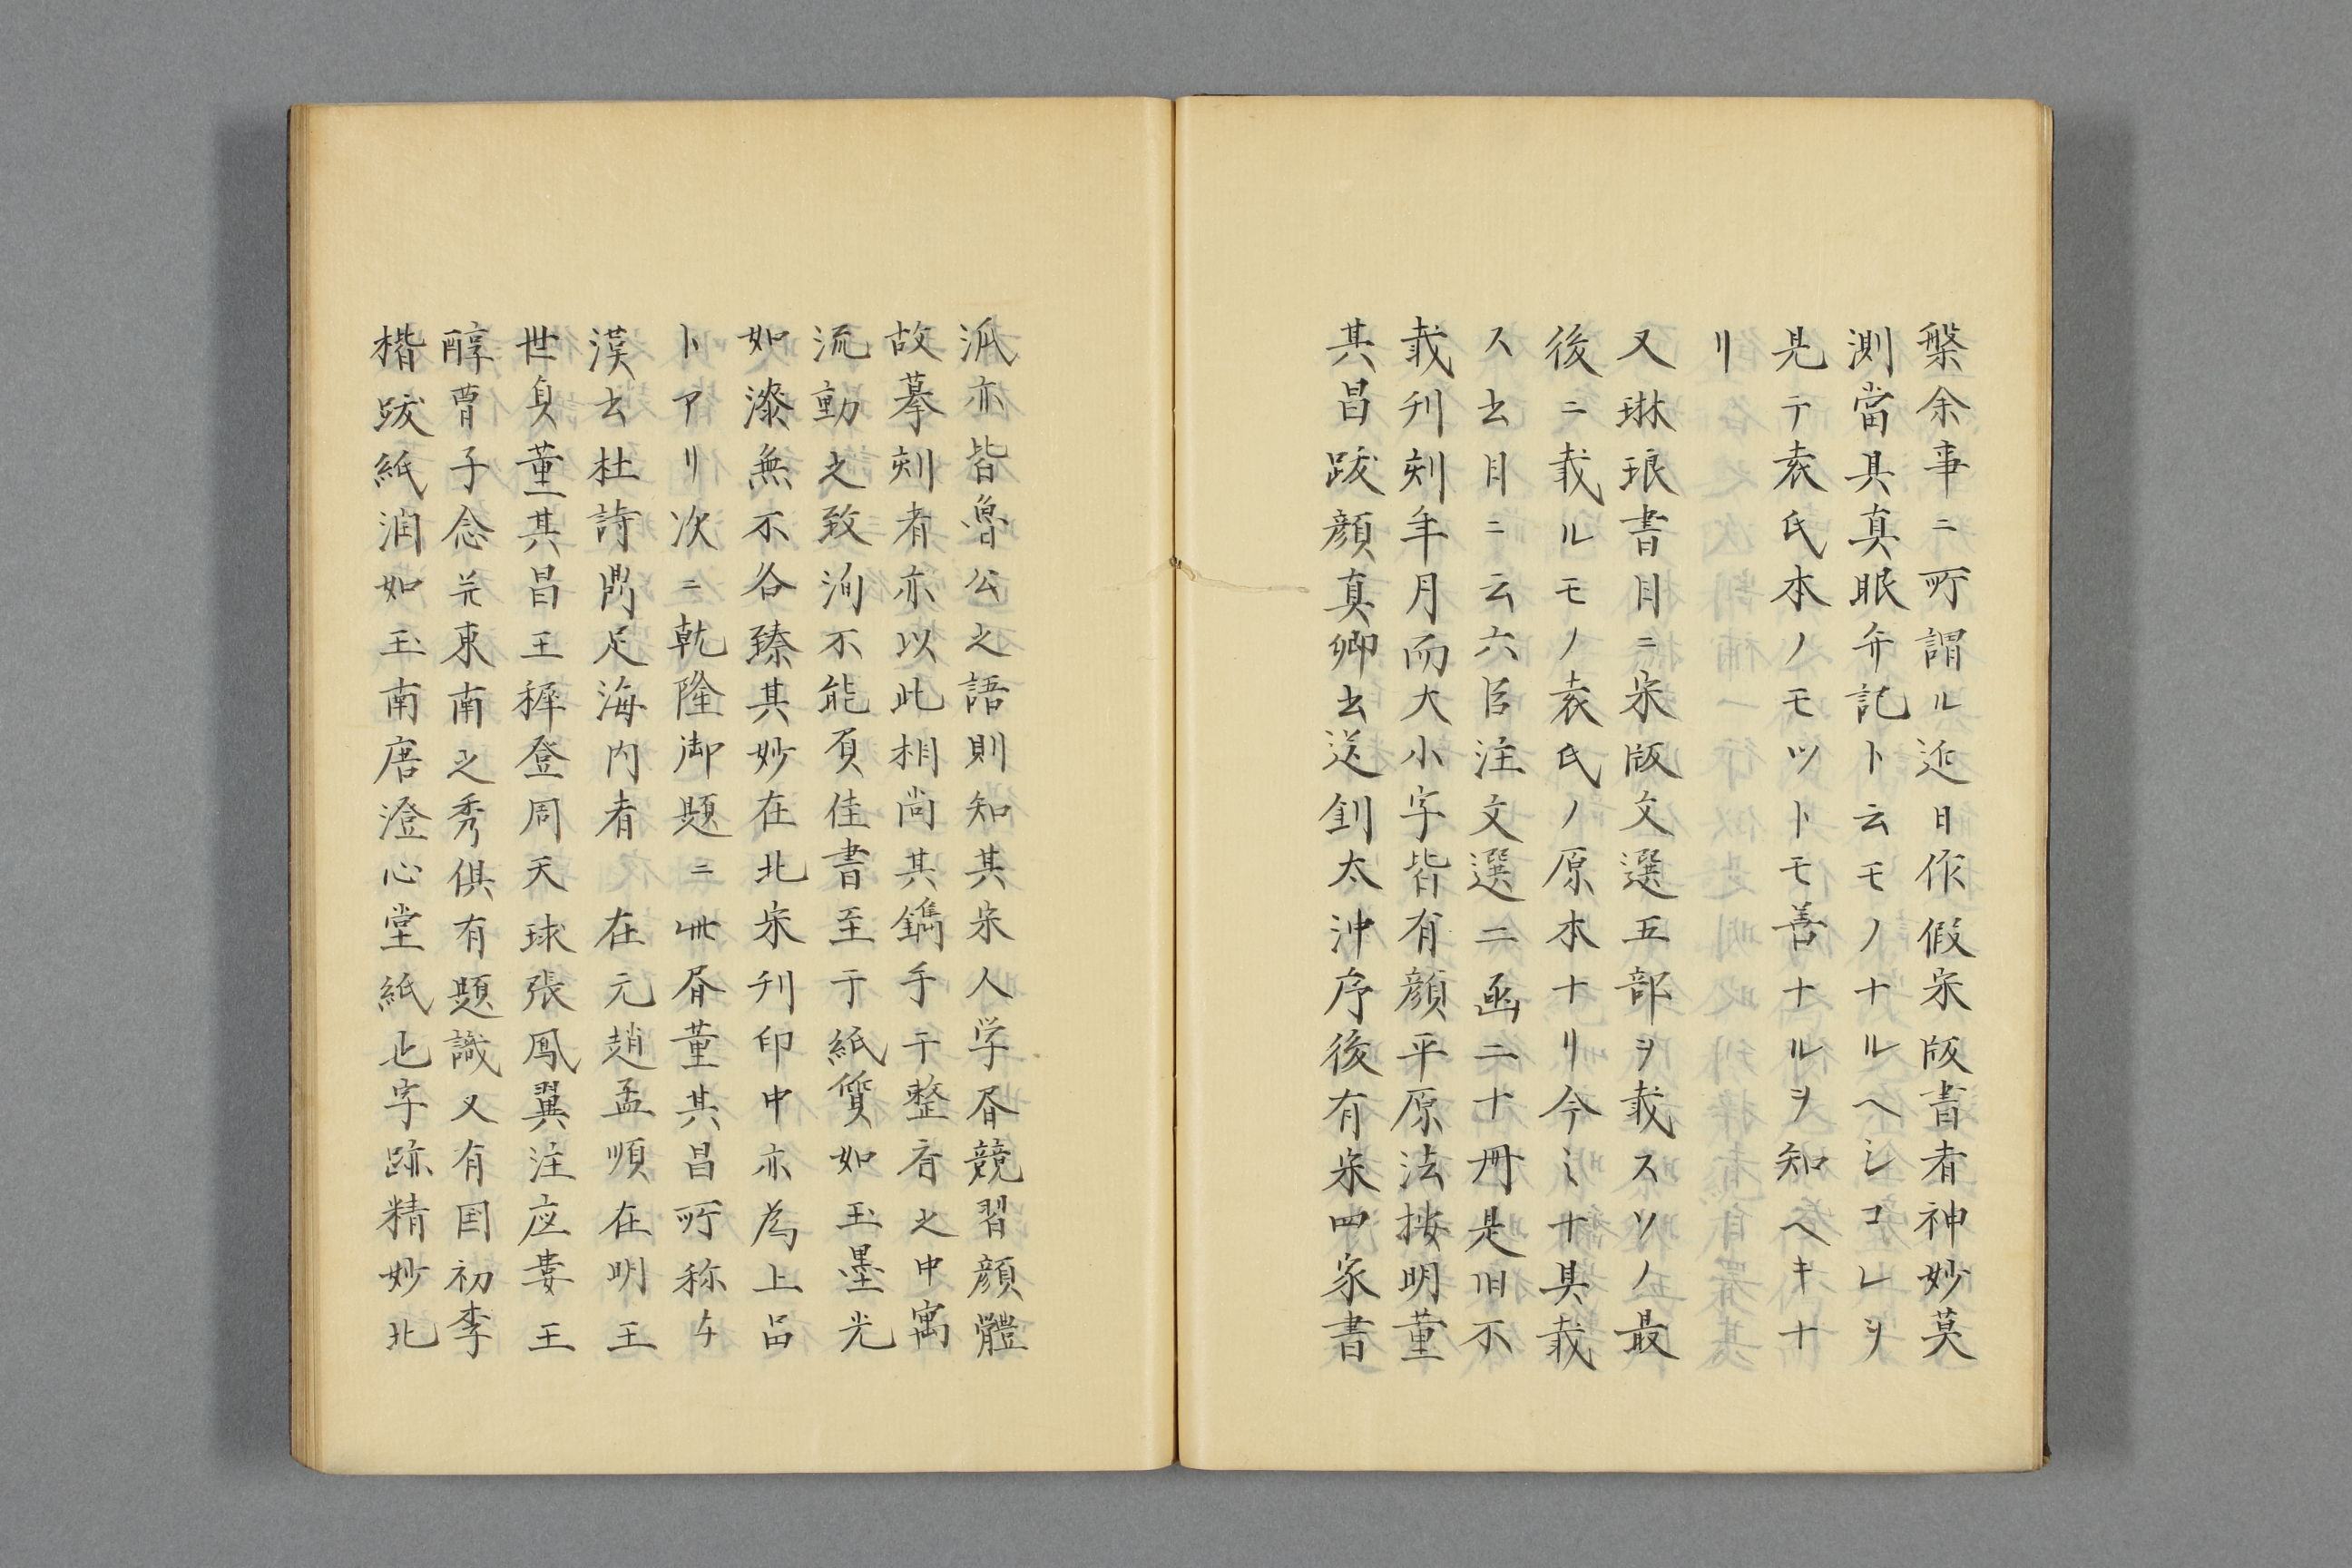 槃余事ニ所謂ル近日作假宋版書者神妙莫
測當具真眼弁記ト云モノナルヘシコレヲ
見テ袁氏本ノモツトモ善ナルヲ知ヘキナ
リ
又琳琅書目ニ宋版文選五部ヲ載スソノ最
後ニ載ルモノ袁氏ノ原本ナリ今ミナ具載
ス去目ニ云六臣注文選二函二十冊是旧不
載刊刻年月而大小字皆有顔平原法按明董
其昌跋顔真卿去送劉太沖序後有宋四家書
派亦皆魯公之語則知其宋人学昏競習顔體
故摹刻者亦以此相尚其鐫手于整斉之中寓
流動之致洵不能負佳書至于紙質如玉墨光
如漆無不各臻其妙在北宋刊印中亦為上品
トアリ次ニ乾隆御題ニ此昏董其昌所称与
漢去杜詩鼎足海内者在元趙孟頫在明王
世貞董其昌王穉登周天球張鳳翼注应婁王
醇曹子念并東南之秀俱有題識又有国初李
楷跋紙潤如玉南唐澄心堂紙也字跡精妙北